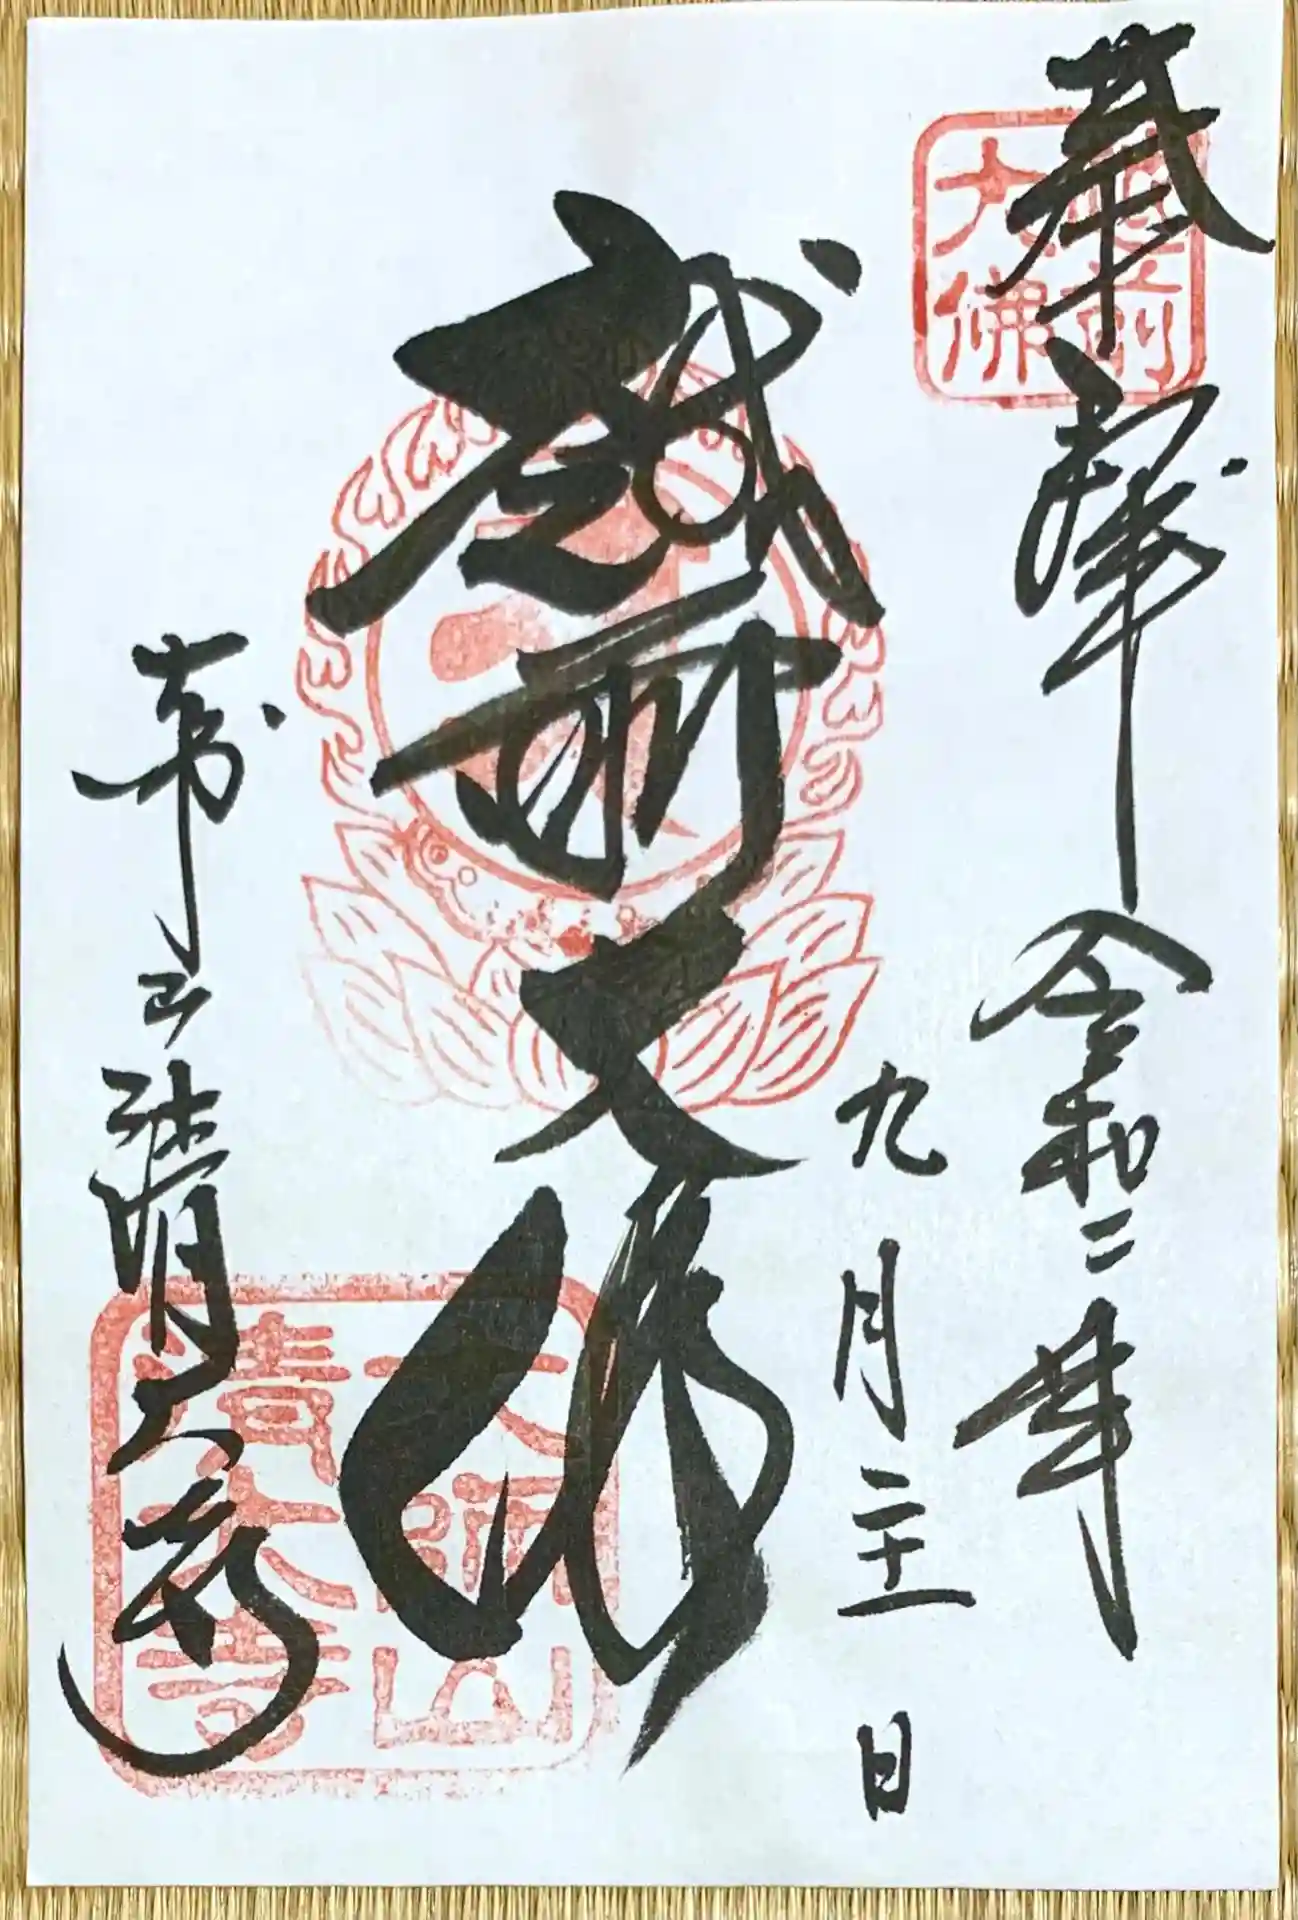 奉拝 令和二年
越前
大佛
九月二十一日
越前大佛
大師山清大寺
大師山
清大寺